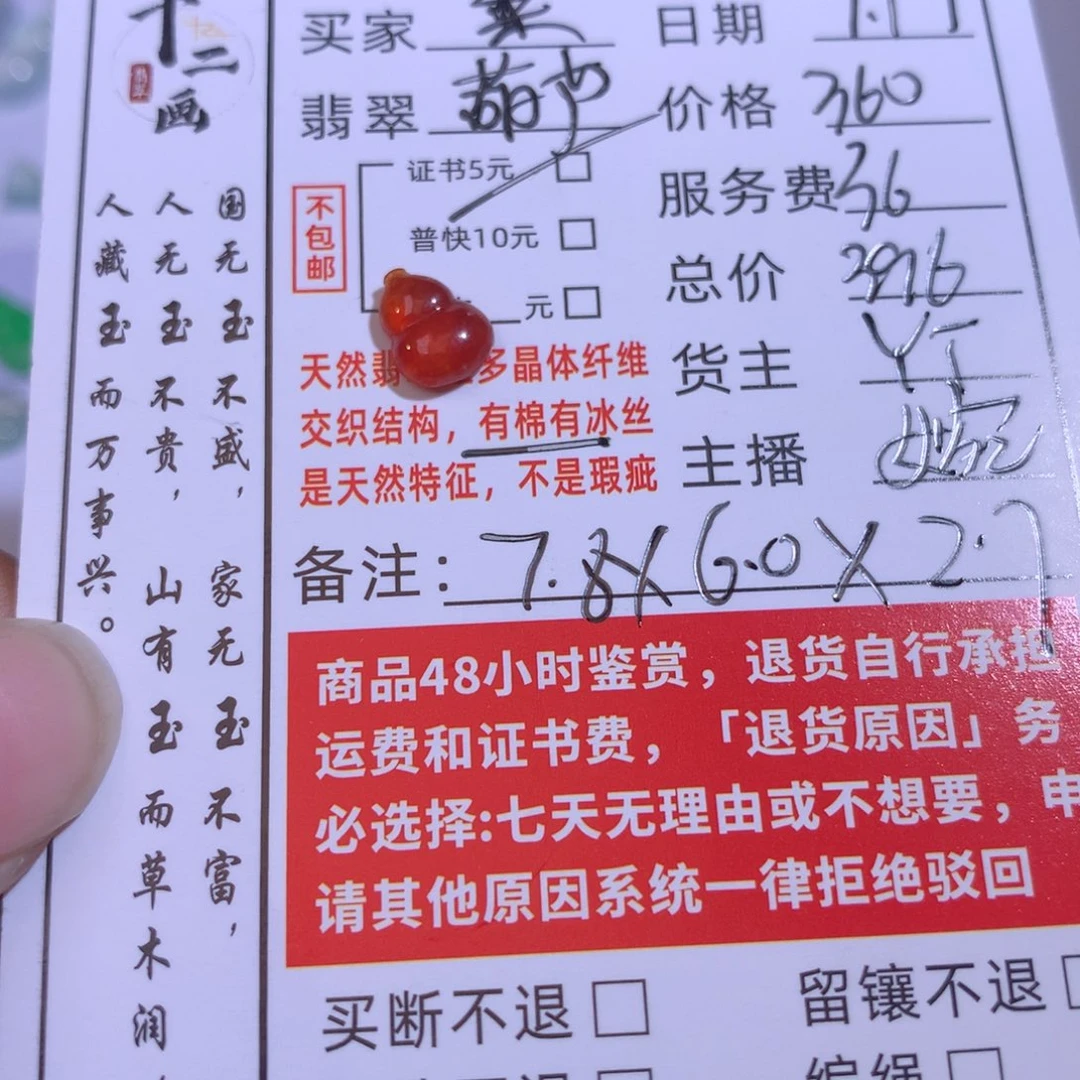 十二画
翡翠
国无玉不盛，家无玉不富，
人无玉不贵，山有玉而草木润
人藏玉而万事兴。
买家
日期
翡翠 葫芦
价格 360
不包邮
证书5元
服务费 36
普快10元
总价 396
元
天然翡 多晶体纤维
交织结构，有棉有冰丝
是天然特征，不是瑕疵
货主 YT
主播
备注：7.8X6.0X2.7
商品48小时鉴赏，退货自行承担
运费和证书费，「退货原因」务
必选择:七天无理由或不想要，申
请其他原因系统一律拒绝驳回
买断不退
留镶不退
编绳